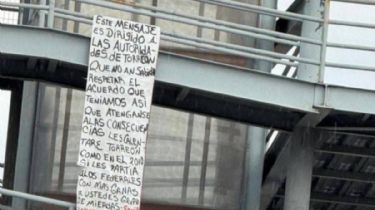 ESTE MENSAJE
ES DIRIGIDO A
LAS AUTORIDA-
DES DE TORREON
QUE NO AN SABIDO
RESPETAR EL
ACUERDO QUE
TENIAMOS ASI
QUE ATENGANSE
ALAS CONSECUEN
CIAS LES CALEN-
TARE TORREON
COMO EN EL 2010
SI LES PARTIA
ALOS FEDERALES
CON MAS GANAS
A USTEDES GRUPO
DE MIERDAS